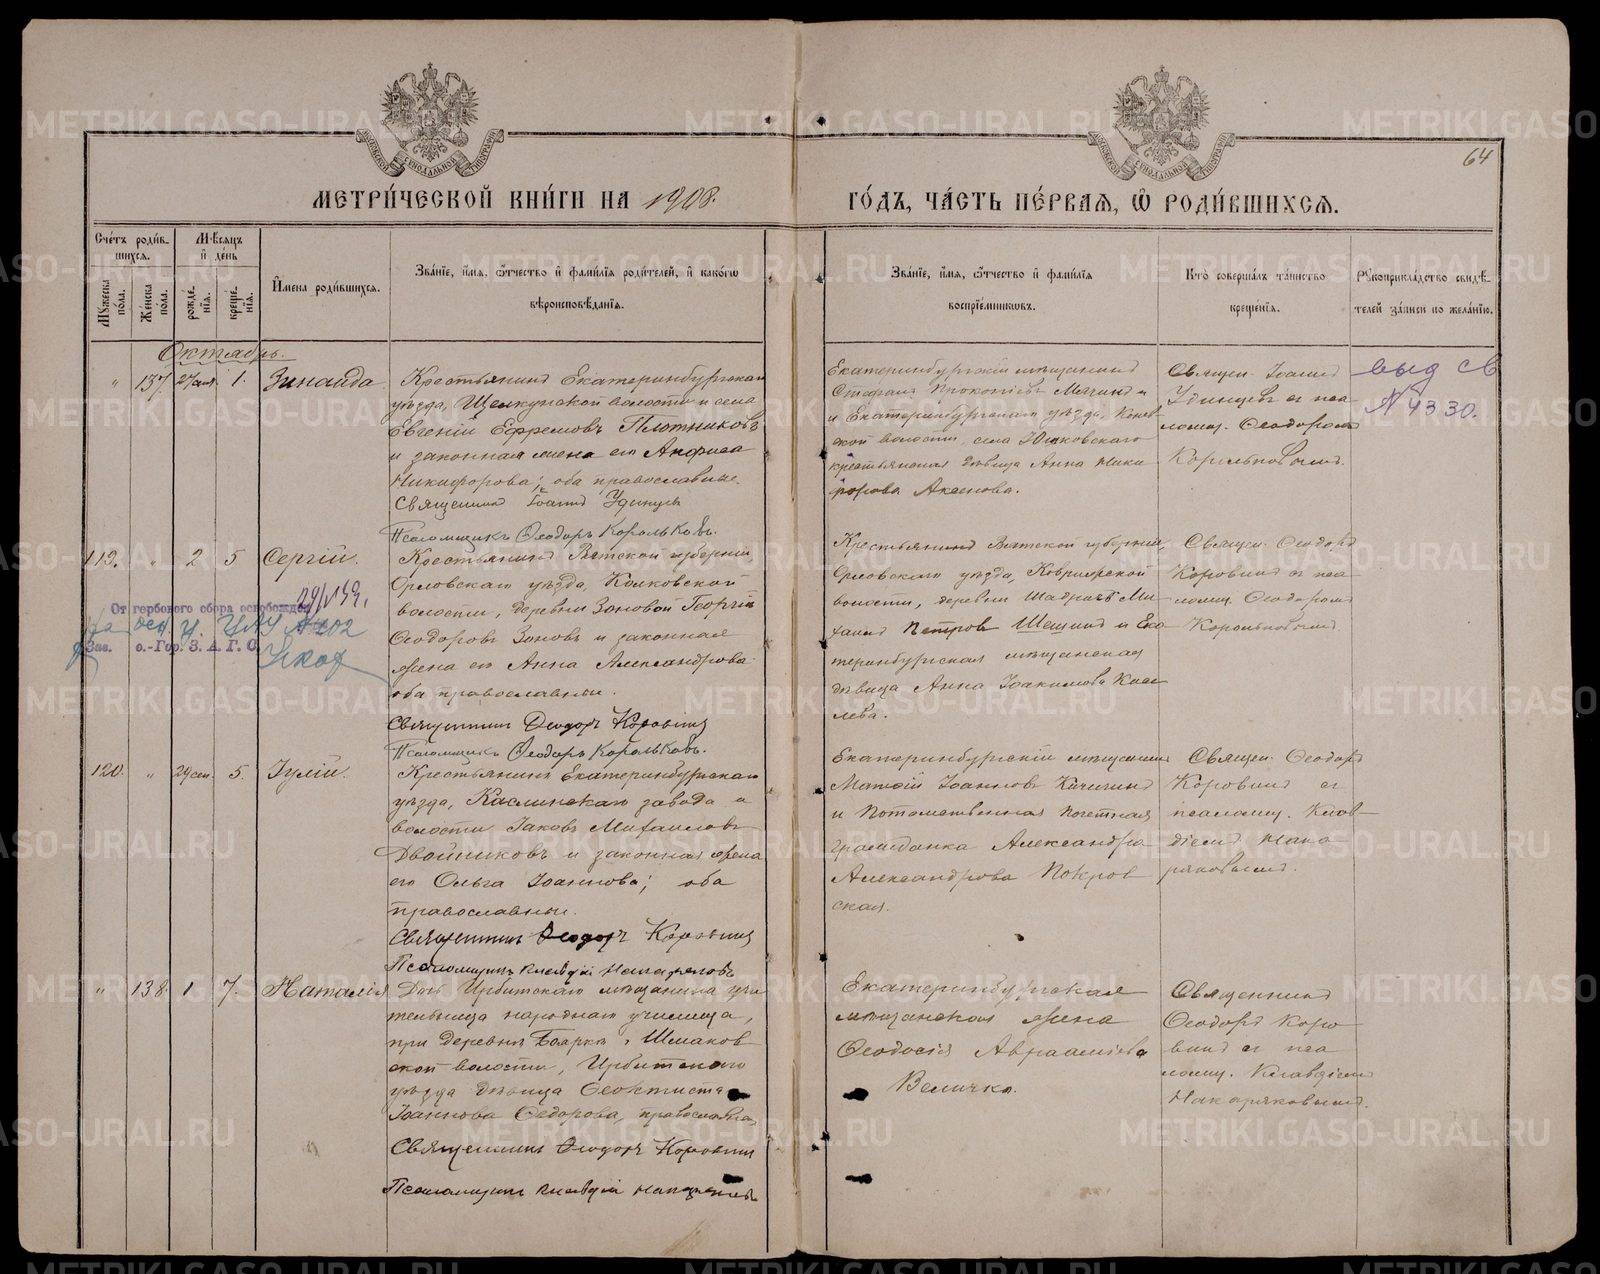 64
МЕТРИ́ЧЕСКОЙ КНИ́ГИ НА 1908.
ГО́ДЪ, ЧА́СТЬ ПЕ́РВАЯ, Ѽ РОДИ́ВШИХСЯ.
Сче́тъ роди́в-
шихся.
Мужеска по́ла.
Же́нска по́ла.
Мѣ́сяцъ
и҆ де́нь
рожде́-
нїя.
креще́-
нїя.
И҆мена роди́вшихся.
Зва́нїе, и҆́мя, ѻ҆́тчество и҆ фами́лїя роди́телей, и҆ како́гѡ
вѣроисповѣ́данїя.
Зва́нїе, и҆́мя, ѻ҆́тчество и҆ фами́лїя
воспрїе́мниковъ.
Кто̀ соверша́лъ та́инство
креще́нїя.
Рукоприкла́дство свидѣ́-
телей за́писи по жела́нїю.
Октябрь.
" 137. 27 авг. 1. Зинаида
Крестьянинъ Екатеринбургскаго
уѣзда, Щелкунской волости и села
Евгеній Ефремовъ Плотниковъ
и законная жена его Анфиса
Никифорова; оба православные.
Священникъ Іоаннъ Удинцев
Псаломщикъ Ѳеодоръ Корольковъ.
Екатеринбургскій мѣщанинъ
Стефанъ Прокопіевъ Мячинъ
и Екатеринбургскаго уѣзда,
ской волости, села Юшковскаго
крестьянская дѣвица Анна Ники
форова Аксенова.
Священ. Іоаннъ
Удинцевъ съ пса
ломщ. Ѳеодоромъ
Корольковымъ.
выд св
N 4330.
119. " 2 5 Сергій.
Крестьянинъ Вятской губерніи
Орловскаго уѣзда, Колковской
волости, деревни Зоновой Георгій
Ѳеодоровъ Зоновъ и законная
жена его Анна Александрова
оба православные.
Священникъ Ѳеодоръ Коровинъ
Псаломщикъ Ѳеодоръ Корольковъ.
От гербового сбора освобожден
Зав. о.-Гор. З. А. Г. С.
Крестьянинъ Вятской губерніи,
Орловскаго уѣзда,
волости, деревни Ми
хаилъ Петровъ и Ека
теринбургская мѣщанская
дѣвица Анна Іоакимова Кисе
лева.
Священ. Ѳеодоръ
Коровинъ съ пса
ломщ. Ѳеодоромъ
Корольковымъ.
120. " 29 сен. 5. Іулій.
Крестьянинъ Екатеринбургскаго
уѣзда, Каслинскаго завода и
волости Іаковъ Михаиловъ
Двойниковъ и законная жена
его Ольга Іоаннова; оба
православные.
Священникъ Ѳеодоръ Коровинъ
Псаломщикъ Клавдій Накаряковъ
Екатеринбургскій мѣщанинъ
Матѳій Іоанновъ Кичигинъ
и Потомственная Почетная
гражданка Александра
Александрова Покров
ская.
Священ. Ѳеодоръ
Коровинъ съ
псаломщ. Клав-
діемъ Нака
ряковымъ.
" 138 1 7. Наталія
Дочь Ирбитскаго мѣщанина учи
тельница народнаго училища,
при деревнѣ Боярка, Шмаков
ской волости, Ирбитскаго
уѣзда дѣвица Ѳеоктиста
Іоаннова Ѳедорова, православная,
Священникъ Ѳеодоръ Коровинъ
Псаломщикъ Клавдій Накаряковъ
Екатеринбургская
мѣщанская жена
Ѳеодосія Авраамiева
Величко.
Священникъ
Ѳеодоръ Коро
винъ съ пса
ломщ. Клавдіемъ
Накаряковымъ.